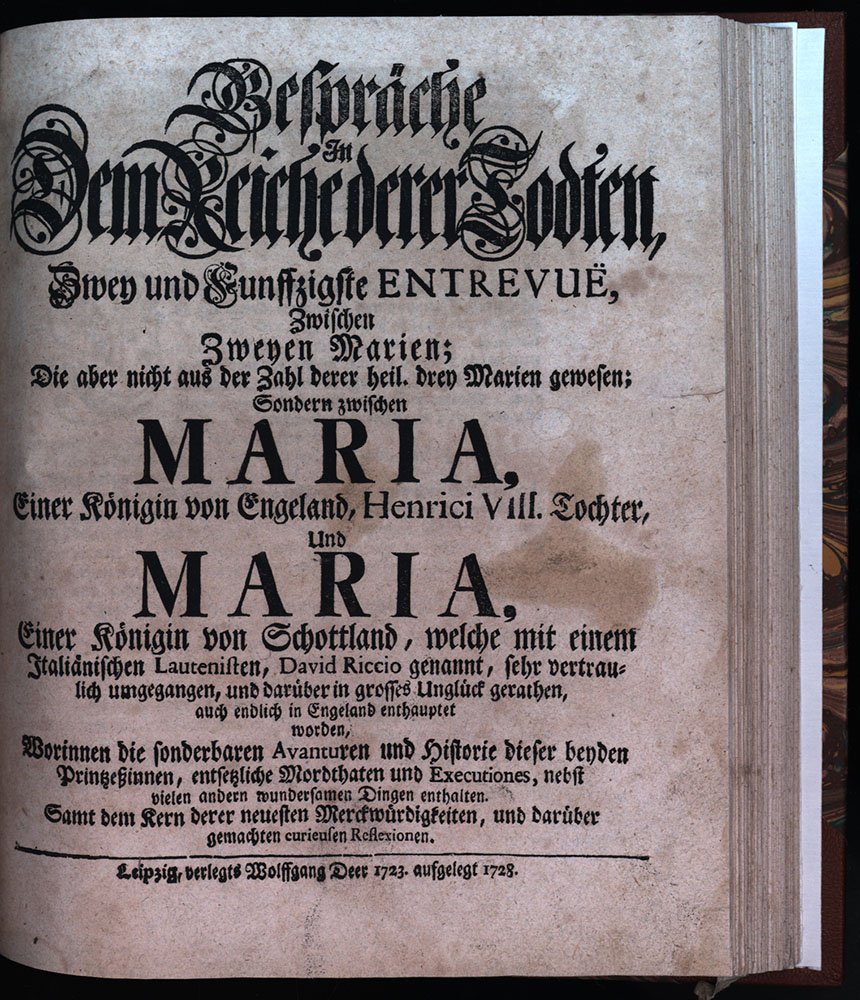 Gespräche
In
Dem Reiche derer Todten,
Zwey und Funffzigste ENTREVUË,
Zwischen
Zweyen Marien;
Die aber nicht aus der Zahl derer heil. drey Marien gewesen;
Sondern zwischen
MARIA,
Einer Königin von Engeland, Henrici VIII. Tochter,
Und
MARIA,
Einer Königin von Schottland, welche mit einem
Italiänischen Lautenisten, David Riccio genannt, sehr vertrau-
lich umgegangen, und darüber in grosses Unglück gerathen,
auch endlich in Engeland enthauptet
worden,
Worinnen die sonderbaren Avanturen und Historie dieser beyden
Printzeßinnen, entsetzliche Mordthaten und Executiones, nebst
vielen andern wundersamen Dingen enthalten.
Samt dem Kern derer neuesten Merckwürdigkeiten, und darüber
gemachten curieusen Reflexionen.
Leipzig, verlegts Wolffgang Deer 1723. aufgelegt 1728.